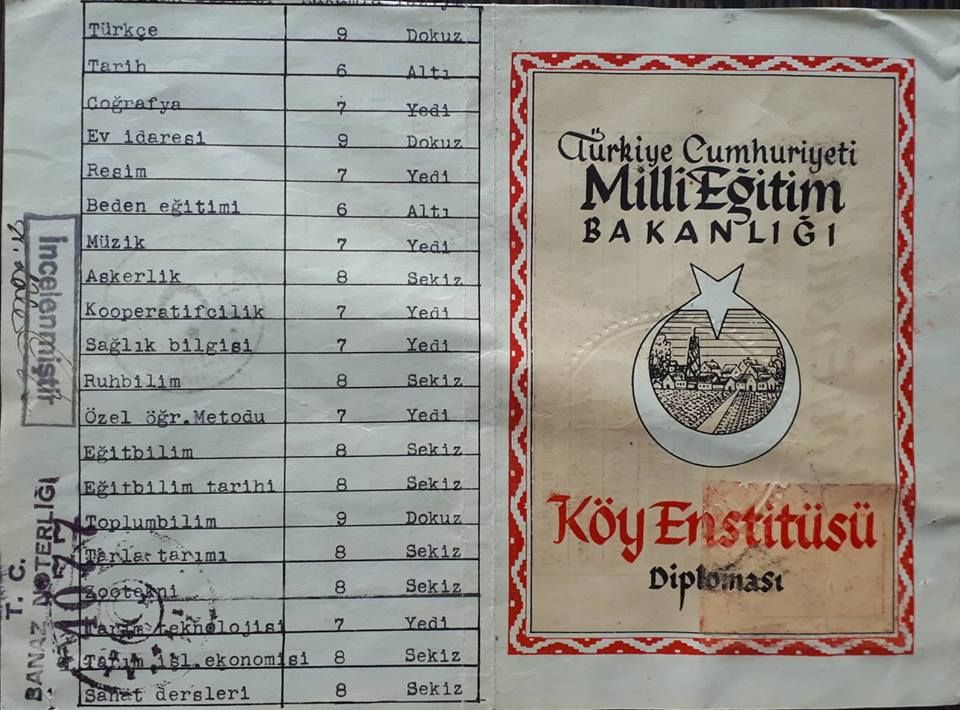 Türkçe 9 Dokuz
Tarih 6 Altı
Coğrafya 7 Yedi
Ev idaresi 9 Dokuz
Resim 7 Yedi
Beden eğitimi 6 Altı
Müzik 7 Yedi
Askerlik 8 Sekiz
Kooperatifcilik 7 Yedi
Sağlık bilgisi 7 Yedi
Ruhbilim 8 Sekiz
Özel öğr.Metodu 7 Yedi
Eğitbilim 8 Sekiz
Eğitbilim tarihi 8 Sekiz
Toplumbilim 9 Dokuz
Tarla tarımı 8 Sekiz
Zootekni 8 Sekiz
Tarım teknolojisi 7 Yedi
Tarım işl.ekonomisi 8 Sekiz
Sanat dersleri 8 Sekiz
İncelenmiştir
T. C.
BANAZ NOTERLİĞİ
Türkiye Cumhuriyeti
Milli Eğitim
BAKANLIĞI
Köy Enstitüsü
Diploması